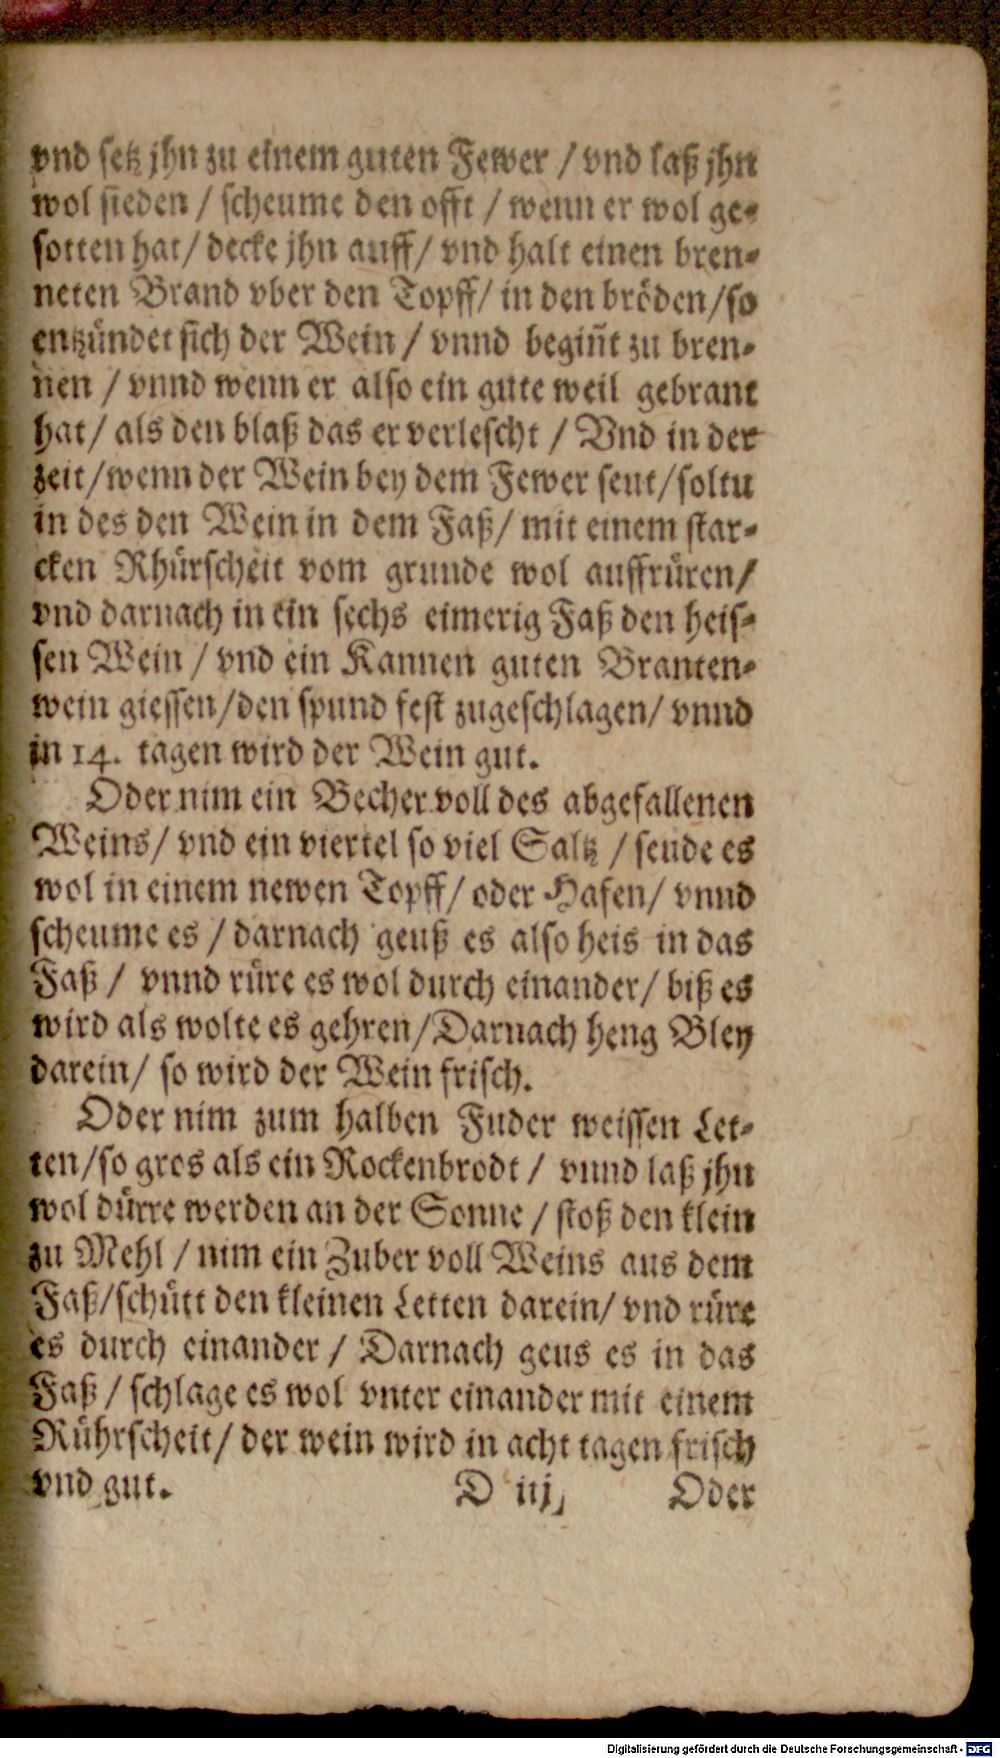 vnd setz jhn zu einem guten Fewer / vnd laß jhn
wol sieden / scheume den offt / wenn er wol ge-
sotten hat / decke jhn auff / vnd halt einen bren-
neten Brand vber den Topff / in den bröden / so
entzündet sich der Wein / vnnd begiñt zu bren-
nen / vnnd wenn er also ein gute weil gebrant
hat / als den blaß das er verlescht / Vnd in der
zeit / wenn der Wein bey dem Fewer seut / soltu
in des den Wein in dem Faß / mit einem star-
cken Rhürscheit vom grunde wol auffrüren /
vnd darnach in ein sechs eimerig Faß den heis-
sen Wein / vnd ein Kannen guten Branten-
wein giessen / den spund fest zugeschlagen / vnnd
in 14. tagen wird der Wein gut.
Oder nim ein Becher voll des abgefallenen
Weins / vnd ein viertel so viel Saltz / seude es
wol in einem newen Topff / oder Hafen / vnnd
scheume es / darnach geuß es also heis in das
Faß / vnnd rüre es wol durch einander / biß es
wird als wolte es gehren / Darnach heng Bley
darein / so wird der Wein frisch.
Oder nim zum halben Fuder weissen Let-
ten / so gros als ein Rockenbrodt / vnnd laß jhn
wol dürre werden an der Sonne / stoß den klein
zu Mehl / nim ein Zuber voll Weins aus dem
Faß / schütt den kleinen Letten darein / vnd rüre
es durch einander / Darnach geus es in das
Faß / schlage es wol vnter einander mit einem
Rührscheit / der wein wird in acht tagen frisch
vnd gut. D iij Oder
Digitalisierung gefördert durch die Deutsche Forschungsgemeinschaft - DFG